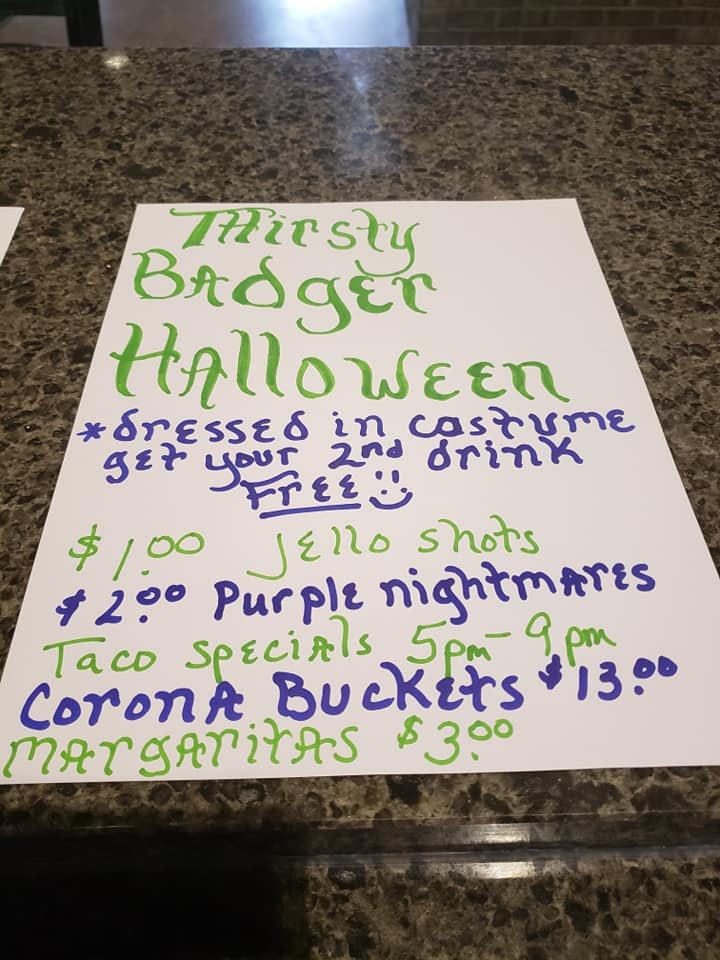 THirsty
BAdger
HAlloween
*dressed in costume
get your 2nd drink
FREE :)
$1.00 Jello shots
$2.00 Purple nightmares
Taco Specials 5pm-9pm
Corona Buckets $13.00
MArgAritAs $3.00